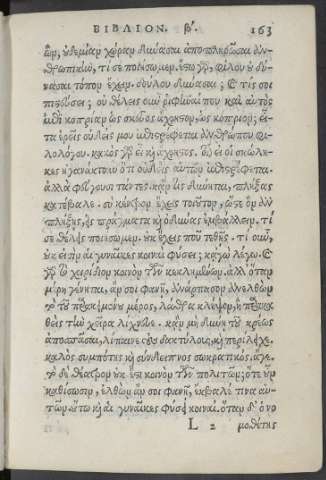 ΒΙΒΛΙΟΝ. β΄. 163
ὤν, οὐδεμίαν χώραν δύνασαι ἀποπληρῶσαι ἀν-
θρωπικὴν, τί σε ποιήσωμεν. ἔστω γὰρ, φίλου οὐ δύ-
νασαι τόπον ἔχειν. δούλου δύνασαι; καὶ τίς σοι
πιστεύσει; οὐ θέλεις οὖν ῥιφῆναί που καὶ αὐτὸς
ἐπὶ κοπρίαν ὡς σκεῦος ἄχρηστον, ὡς κοπρίον; εἶ-
τα ἐρεῖς οὐδείς μου ἐπιστρέφεται ἀνθρώπου φι-
λολόγου. κακὸς γὰρ εἶ καὶ ἄχρηστος. οἷον εἰ οἱ σκώλη-
κες ἠγανάκτουν ὅτι οὐδεὶς αὐτῶν ἐπιστρέφεται.
ἀλλὰ φεύγουσι πάντες. κἄν τις δύνηται, πλήξας
κατέβαλε. σὺ κέντρον ἔχεις τοιοῦτον, ὥστε ὃν ἂν
πλήξῃς, εἰς πράγματα καὶ ὀδύνας ἐμβάλλειν. τί
σε θέλεις ποιήσωμεν. οὐκ ἔχεις ποῦ τεθῇς. τί οὖν,
οὐκ εἰσὶν αἱ γυναῖκες κοιναὶ φύσει; κἀγὼ λέγω. καὶ
γὰρ τὸ χοιρίδιον κοινὸν τῶν κεκλημένων. ἀλλ' ὅταν
μέρη γένηται, ἄν σοι φανῇ, ἀνάρπασον ἀνελθὼν
τὸ τοῦ παρακειμένου μέρος, λάθρα κλέψον, ἢ παρακα-
θεὶς τὴν χεῖρα λίχνευε. κἂν μὴ δύνῃ τοῦ κρέως
ἀποσπάσαι, λίπαινε τοὺς δακτύλους, καὶ περίλειχε.
καλὸς συμπότης καὶ σύνδειπνος σωκρατικός. ἄγε
τὸ δὲ θέατρον οὐκ ἔστι κοινὸν τῶν πολιτῶν; ὅταν οὖν
καθίσωσιν, ἐλθὼν ἄν σοι φανῇ, ἔκβαλέ τινα αὐ-
τῶν. οὕτω καὶ αἱ γυναῖκες φύσει κοιναί. ὅταν δ' ὁ νο
L 2 μοθέτης